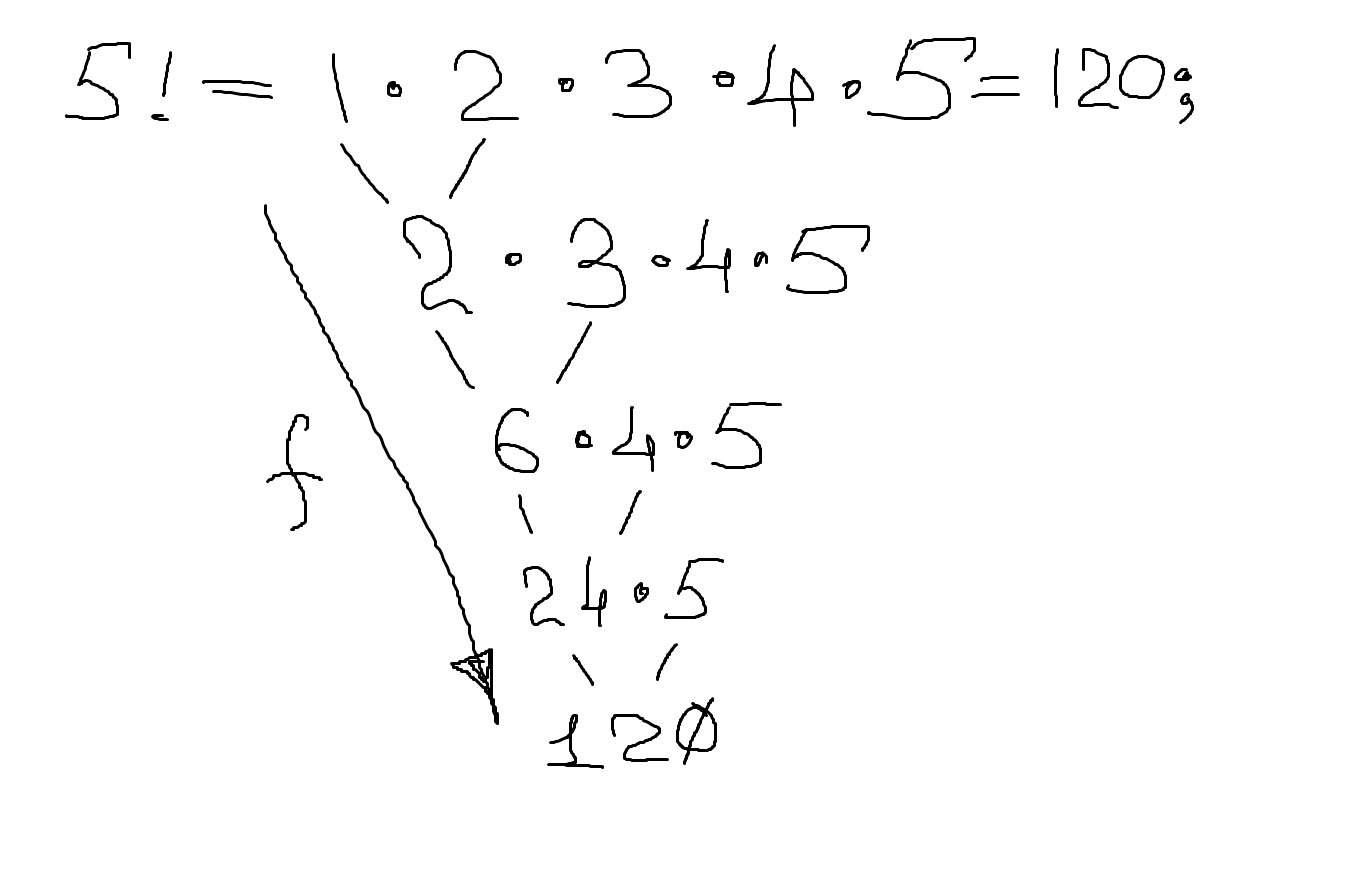 5! = 1 · 2 · 3 · 4 · 5 = 120;
2 · 3 · 4 · 5
6 · 4 · 5
f
24 · 5
120